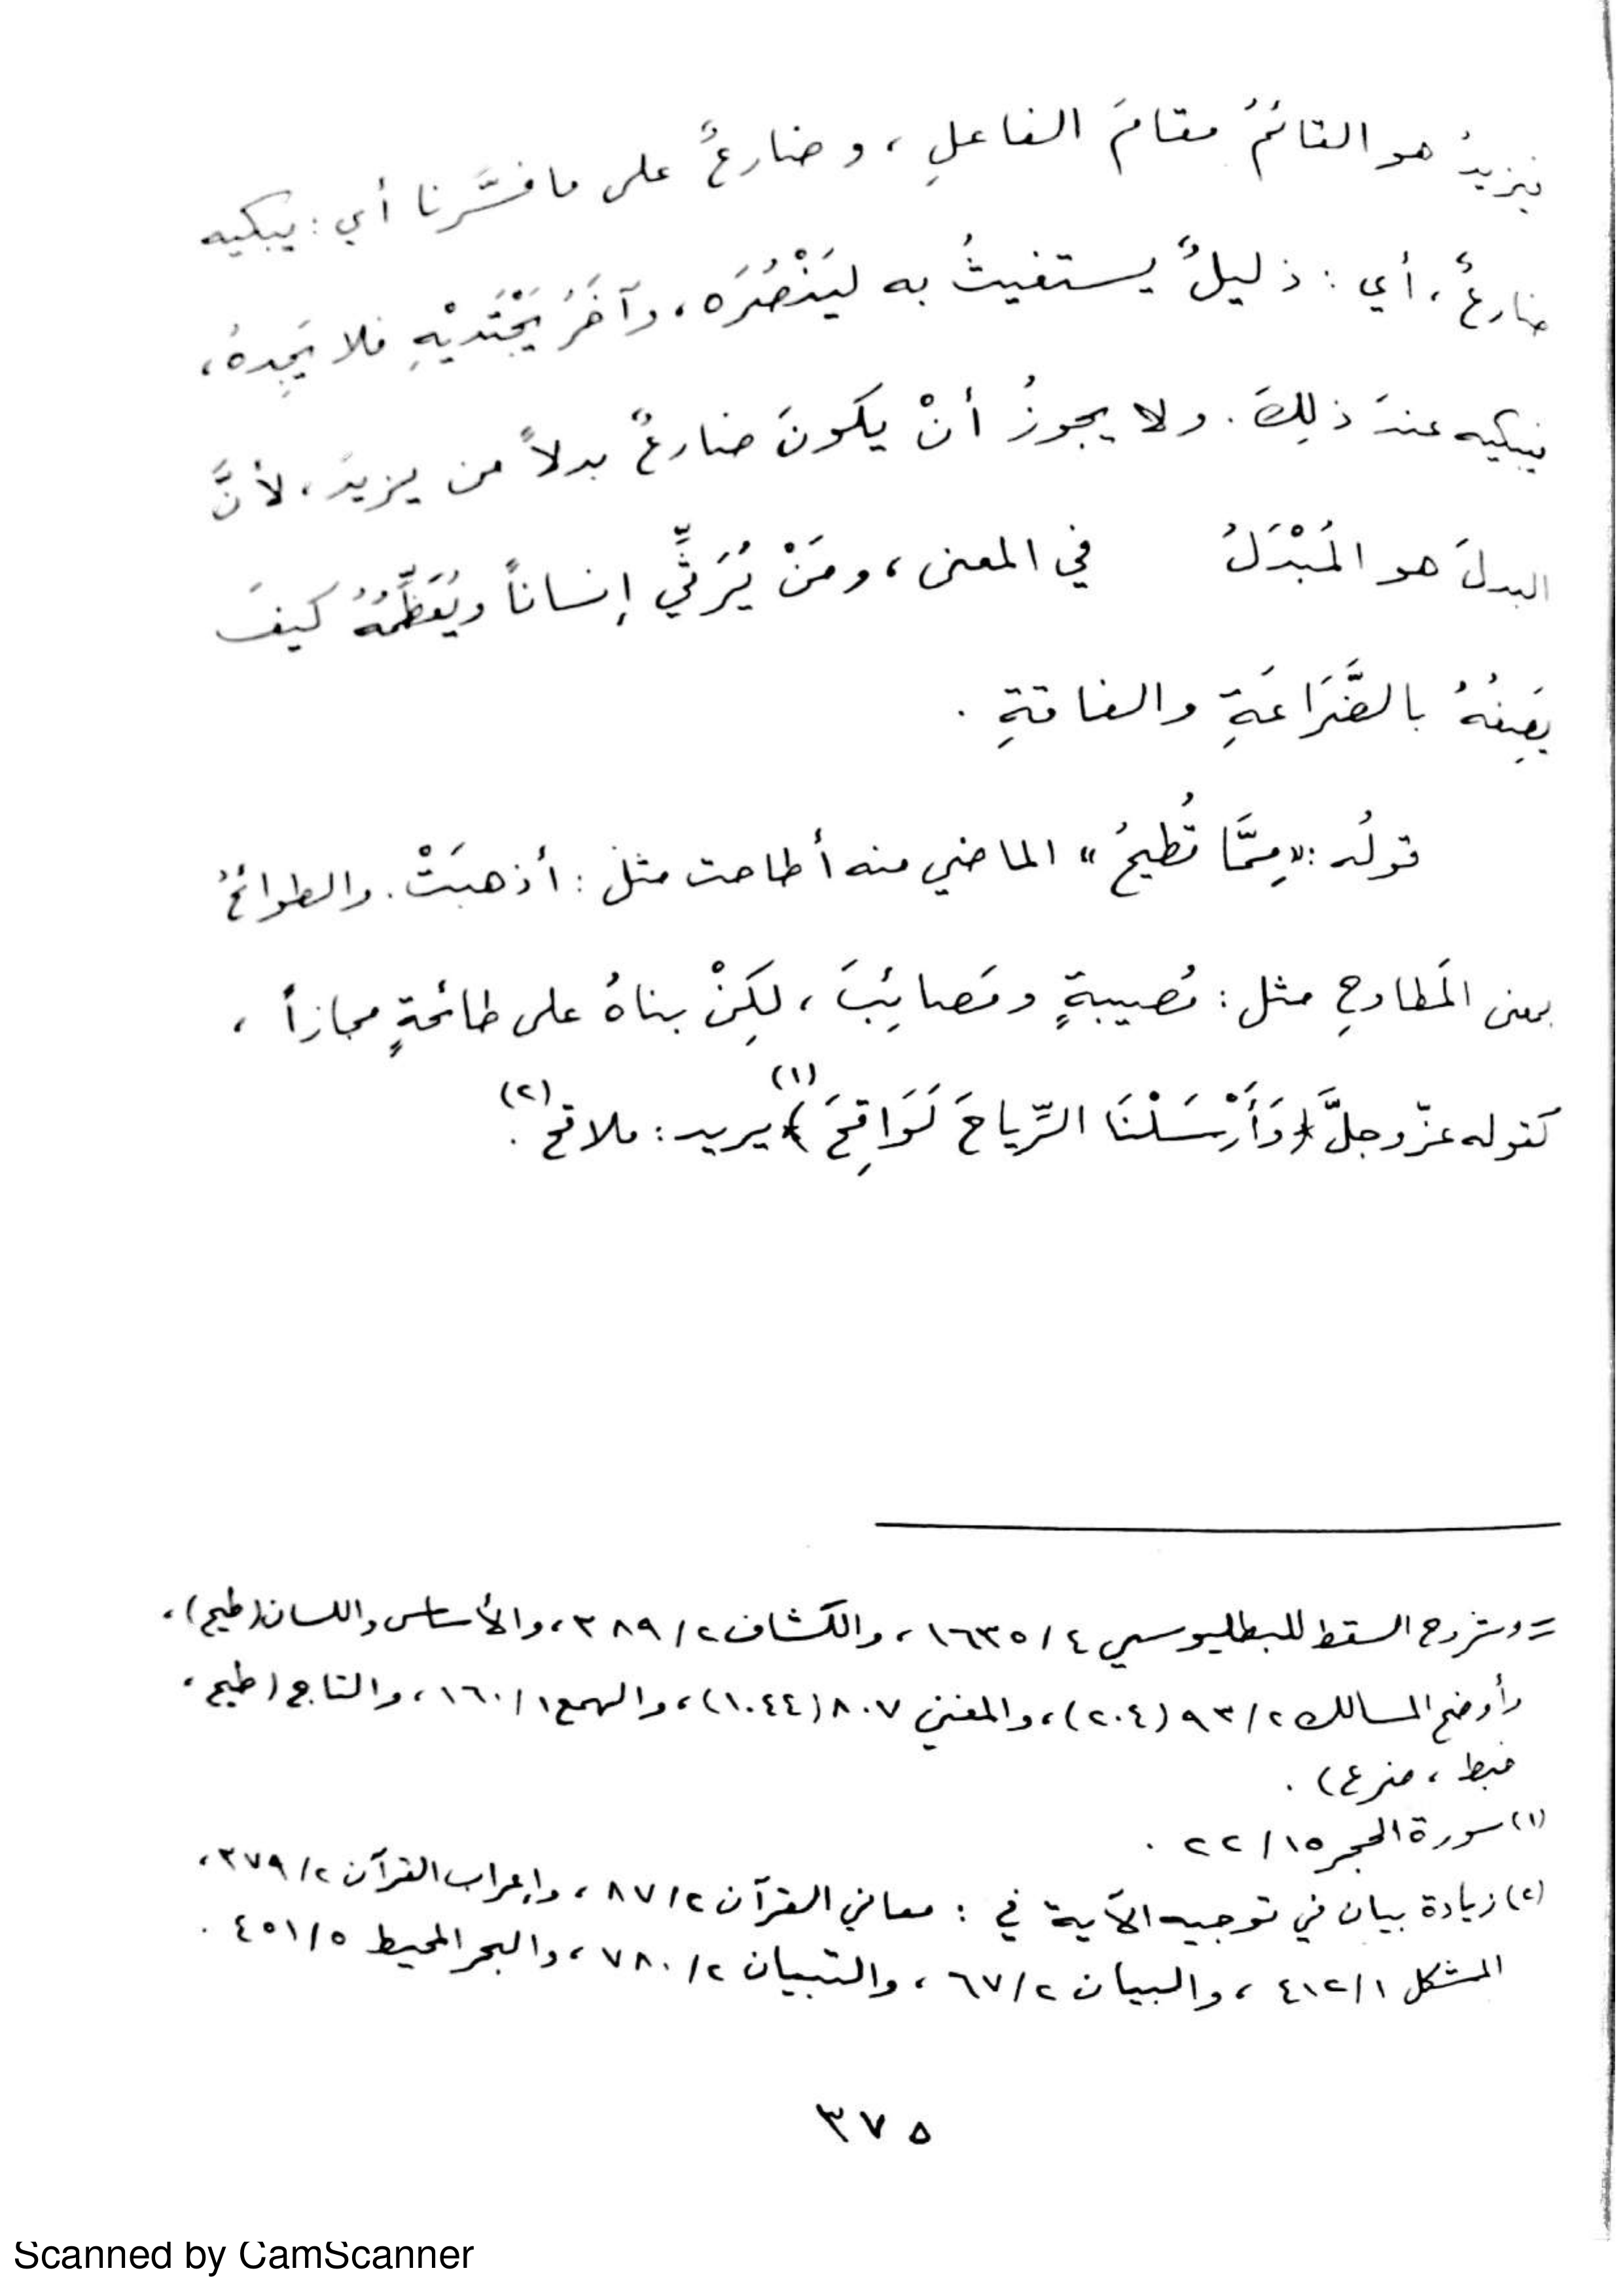 فيزيدُ هو القائمُ مقامَ الفاعلِ ، وضارعٌ على ما فسَّرنا أي : يبكيه
ضارعٌ ، أي : ذليلٌ يستغيثُ به ليَنْصُرَه ، وآخَرُ يَجْتَديْهِ فلا يَجِدهُ ،
فيبكيه عندَ ذلِكَ . ولا يجوزُ أنْ يكونَ ضارعٌ بدلاً من يزيدَ ، لأنَّ
البدلَ هو المُبْدَلُ في المعنى ، ومَنْ يُرَثِّي إنساناً ويُعَظِّمُهُ كيفَ
يَصِفُهُ بالضَّرَاعَةِ والفاقةِ .
قولُه : «مِمَّا تُطيحُ» الماضي منه أطاحت مثل : أذهبَتْ . والطوائحُ
بمعنى المَطاوحِ مثل : مُصيبةٍ ومَصائِبَ ، لكِنْ بناهُ على طائحةٍ مجازاً ،
كقوله عزّ وجلَّ ﴿وَأَرْسَلْنَا الرِّياحَ لَوَاقِحَ﴾(١) يريد : ملاقح(٢) .
= وشروح السقط للبطليوسي ٤/ ١٦٣٥ ، والكشاف ٢/ ٣٨٩ ، والأساس واللسان (طيح) ،
وأوضح المسالك ٢/ ٩٣ (٢٠٤) ، والمغني ٨٠٧ (١٠٤٤) ، والهمع ١/ ١٦٠ ، والتاج (طيح ،
خبط ، ضرع) .
(١) سورة الحجر ١٥/ ٢٢ .
(٢) زيادة بيان في توجيه الآية في : معاني القرآن ٢/ ٨٧ ، وإعراب القرآن ٢/ ٣٧٩ ،
المشكل ١/ ٤١٢ ، والبيان ٢/ ٦٧ ، والتبيان ٢/ ٧٨٠ ، والبحر المحيط ٥/ ٤٥١ .
٣٧٥
Scanned by CamScanner